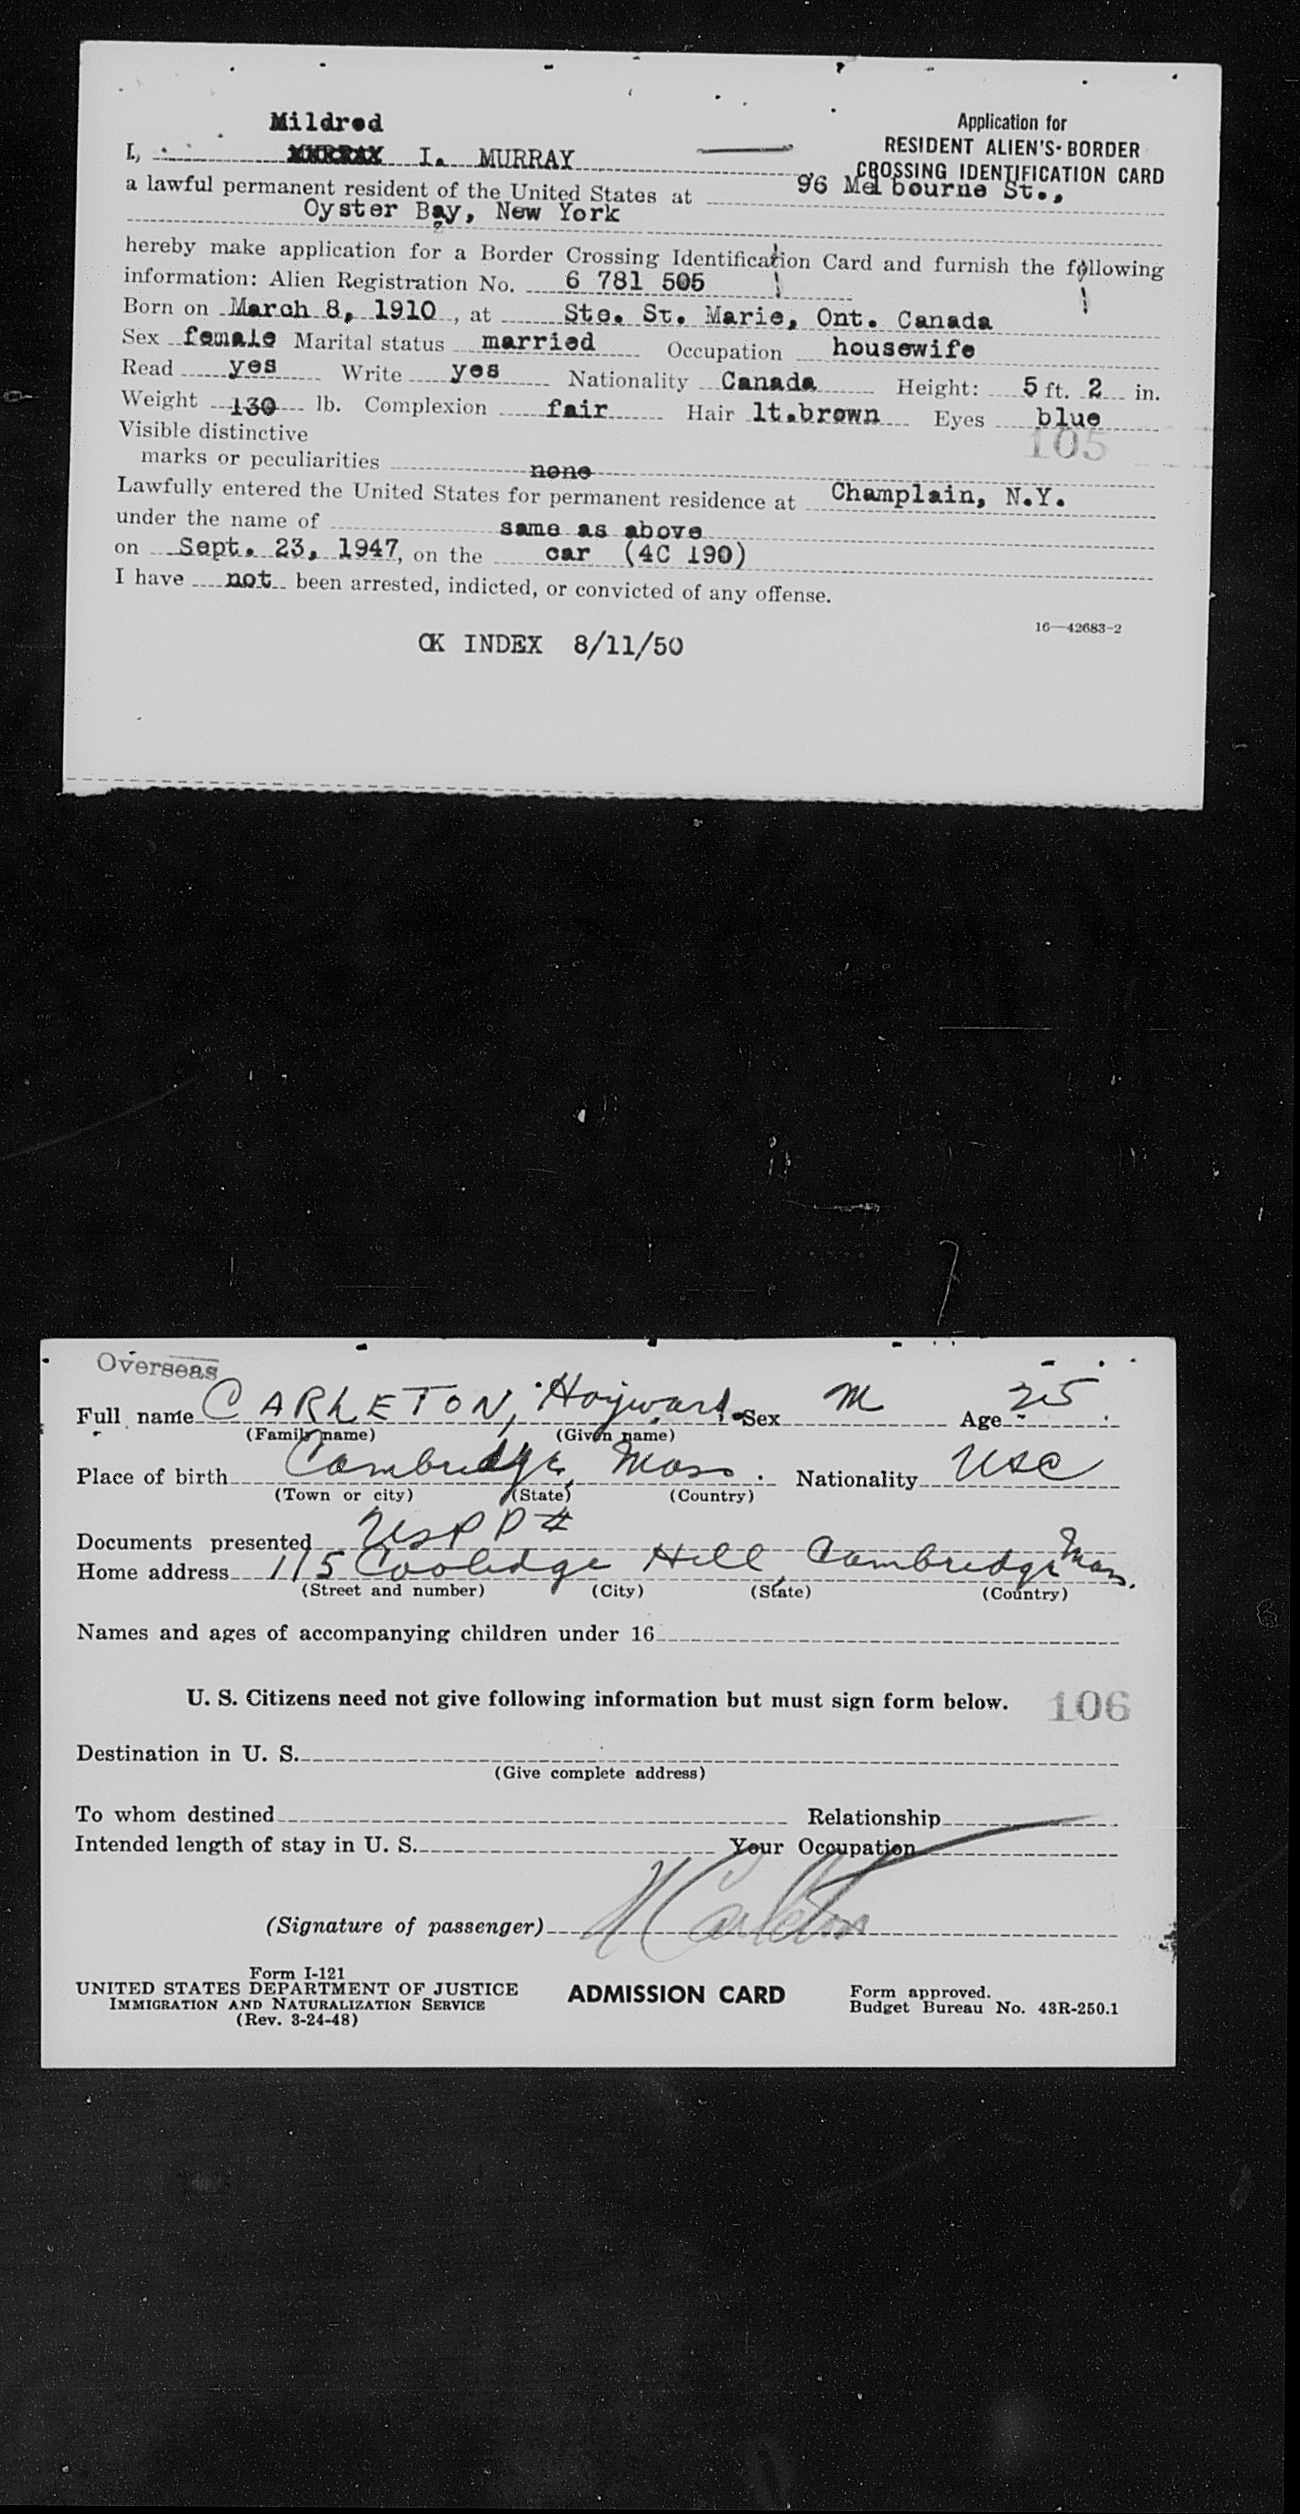 Mildred
Application for
RESIDENT ALIEN'S BORDER
CROSSING IDENTIFICATION CARD
I, MURRAY I. MURRAY
a lawful permanent resident of the United States at 96 Melbourne St.,
Oyster Bay, New York
hereby make application for a Border Crossing Identification Card and furnish the following
information: Alien Registration No. 6 781 505
Born on March 8, 1910, at Ste. St. Marie, Ont. Canada
Sex female Marital status married Occupation housewife
Read yes Write yes Nationality Canada Height: 5 ft. 2 in.
Weight 130 lb. Complexion fair Hair lt.brown Eyes blue
105
Visible distinctive
marks or peculiarities none
Lawfully entered the United States for permanent residence at Champlain, N.Y.
under the name of same as above
on Sept. 23, 1947, on the car (4C 190)
I have not been arrested, indicted, or convicted of any offense.
16—42683-2
OK INDEX 8/11/50
Overseas
Full name CARLETON, Hayward. Sex M Age 25
(Family name) (Given name)
Place of birth Cambridge, Mass. Nationality USC
(Town or city) (State) (Country)
Documents presented USPP#
Home address 115 Coolidge Hill, Cambridge Mass.
(Street and number) (City) (State) (Country)
Names and ages of accompanying children under 16
U. S. Citizens need not give following information but must sign form below.
106
Destination in U. S.
(Give complete address)
To whom destined Relationship
Intended length of stay in U. S. Your Occupation
(Signature of passenger) H Carleton
Form I-121
UNITED STATES DEPARTMENT OF JUSTICE
IMMIGRATION AND NATURALIZATION SERVICE
(Rev. 3-24-48)
ADMISSION CARD
Form approved.
Budget Bureau No. 43R-250.1